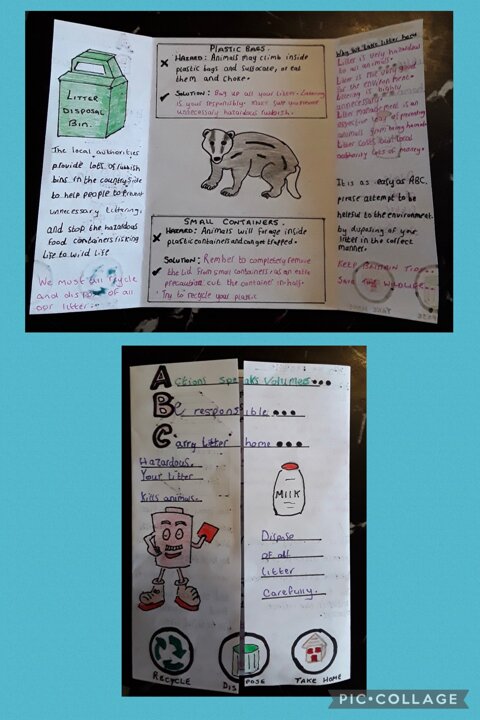 LITTER
DISPOSAL
BIN.
The local authorities
provide lots of rubbish
bins in the countryside
to help people to prevent
unnecessary littering.
and stop the hazardous
food containers risking
life to wild life
We must all recycle
and dispose of all
our litter.
PLASTIC BAGS.
HAZARD: Animals may climb inside
plastic bags and suffocate, or eat
them and choke.
SOLUTION: Bag up all your litter. Littering
is your responsibility. Make sure you never
unnecessary hazardous rubbish.
SMALL CONTAINERS.
HAZARD: Animals will forage inside
plastic containers and can get trapped.
SOLUTION: Rember to completely remove
the lid from small containers. as an extra
precaution cut the container in half.
Try to recycle your plastic
Why we take litter home
Litter is very hazardous
to all animals.
Litter is not very good
for the environment.
Littering is highly
unnecessary.
Litter management is an
effective way of preventing
animals from being harmed.
Litter costs our local
authority lots of money.
It is as easy as ABC.
please attempt to be
helpful to the environment
by disposing of your
litter in the correct
manner.
KEEP BRITAIN TIDY
SAVE OUR WILDLIFE
Actions speaks volumes...
Be responsible...
Carry litter home...
Hazardous.
Your litter
kills animals.
MILK
Dispose
of all
litter
Carefully.
RECYCLE
DISPOSE
TAKE HOME
PIC•COLLAGE